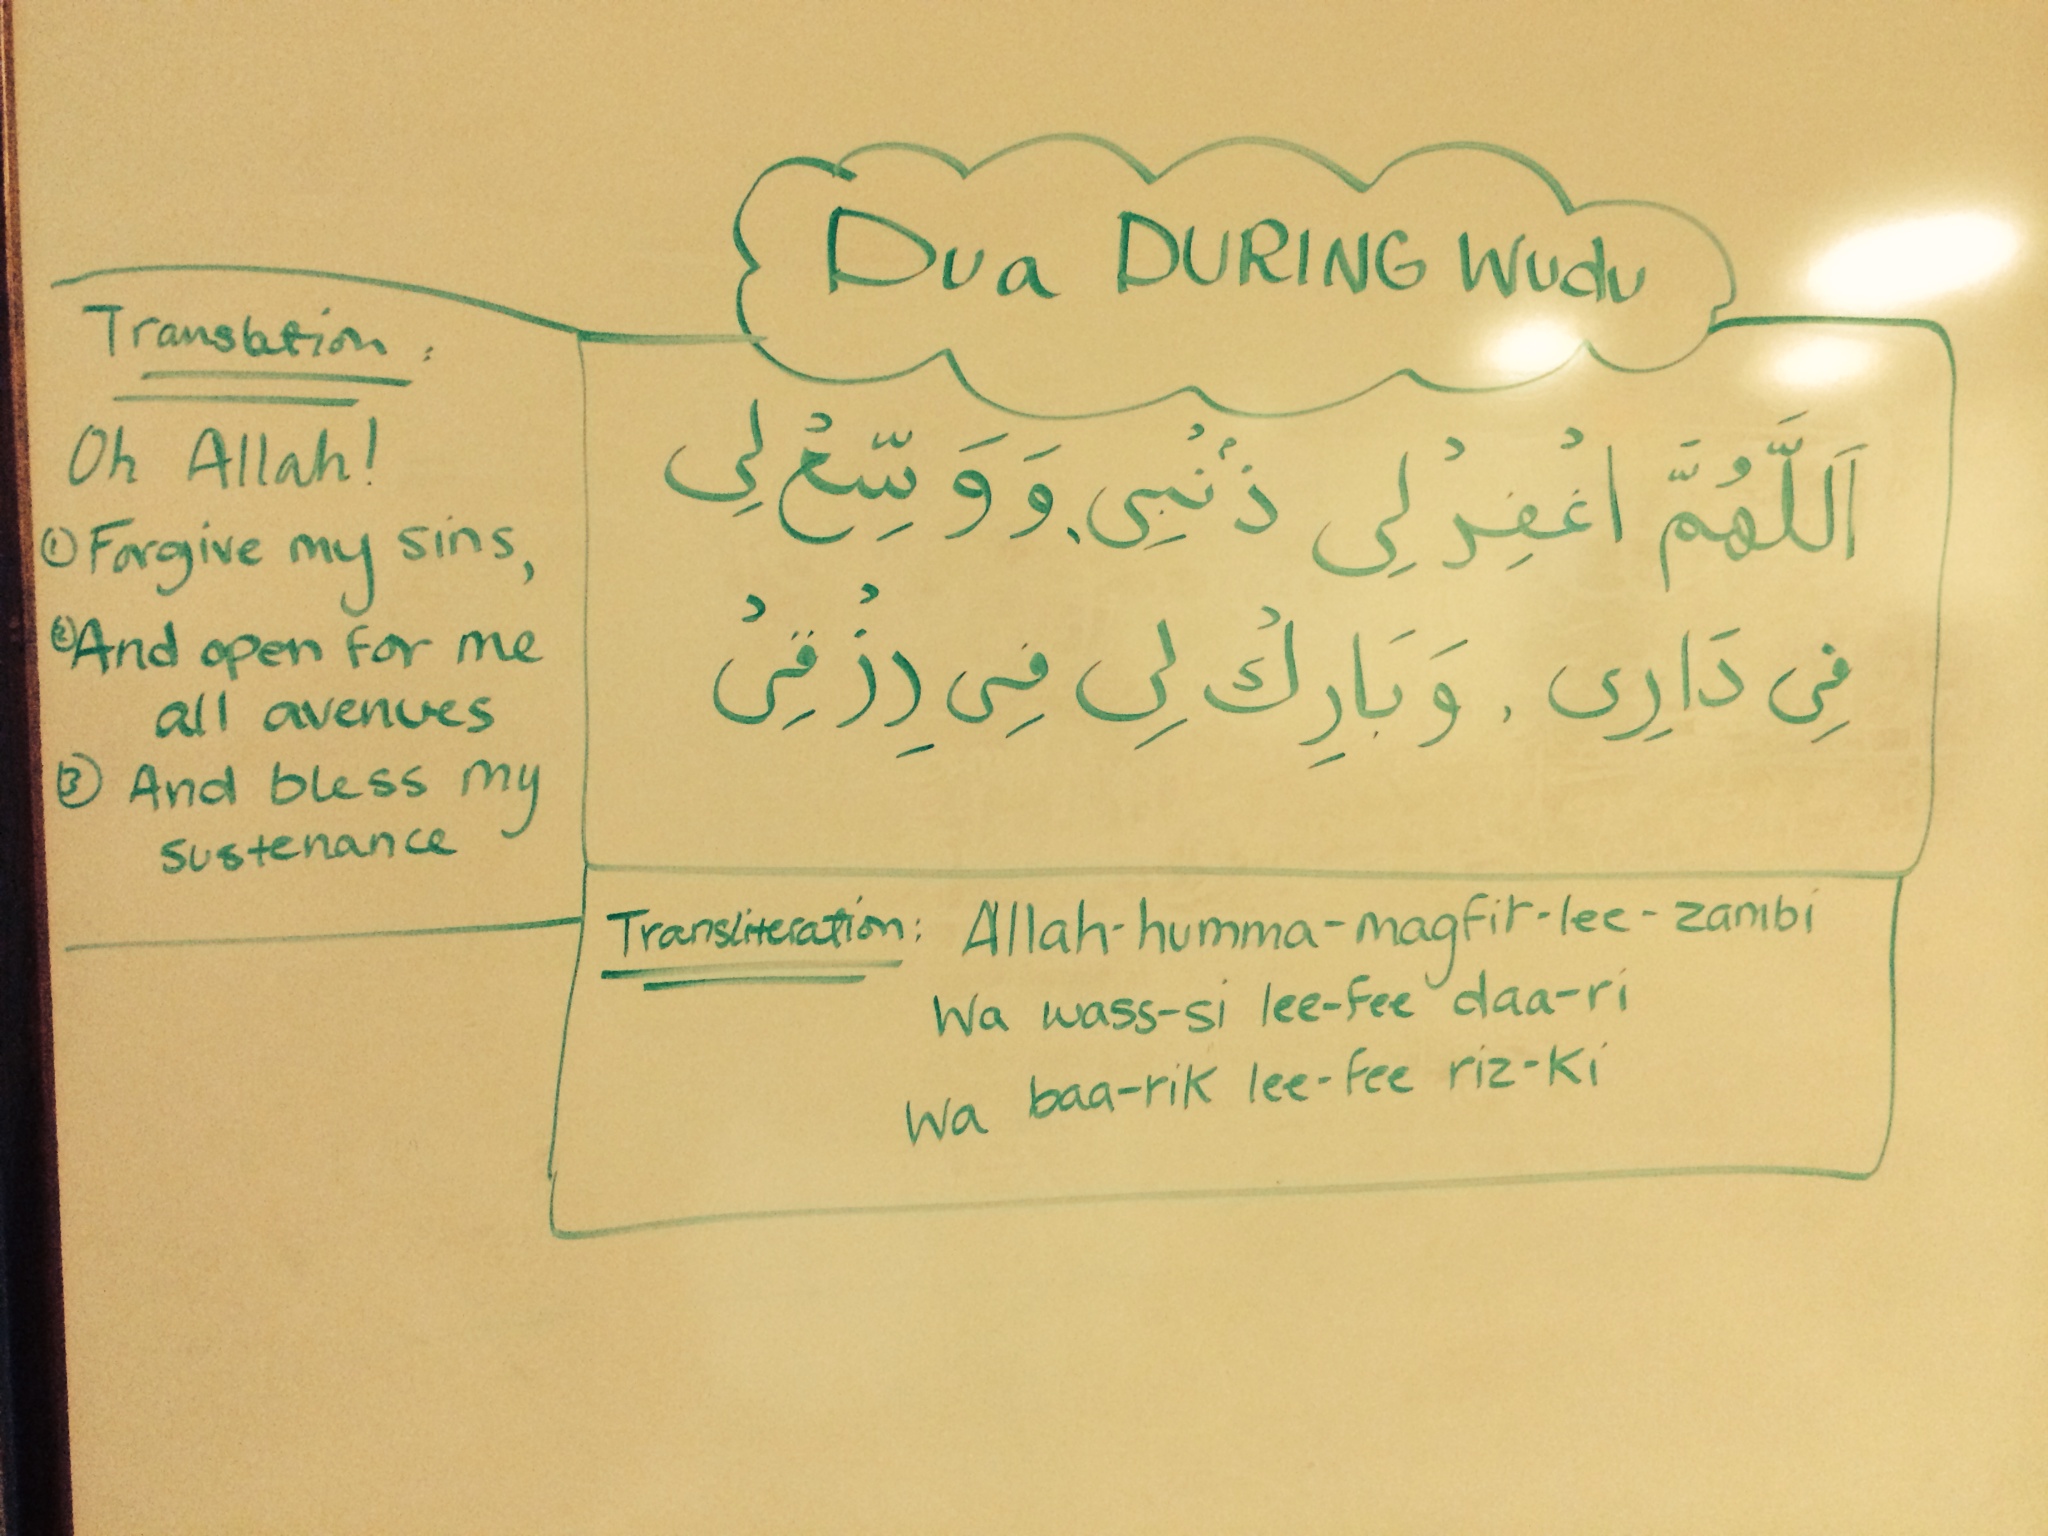 Dua DURING Wudu
Translation:
Oh Allah!
① Forgive my sins,
② And open for me
all avenues
③ And bless my
sustenance
اَللَّهُمَّ اغْفِرْ لِى ذَنْۢبِى. وَ وَسِّعْ لِى
فِى دَارِى. وَ بَارِكْ لِى فِى رِزْقِىْ
Transliteration: Allah-humma-magfir-lee-zambi
Wa wass-si lee-fee daa-ri
Wa baa-rik lee-fee riz-ki